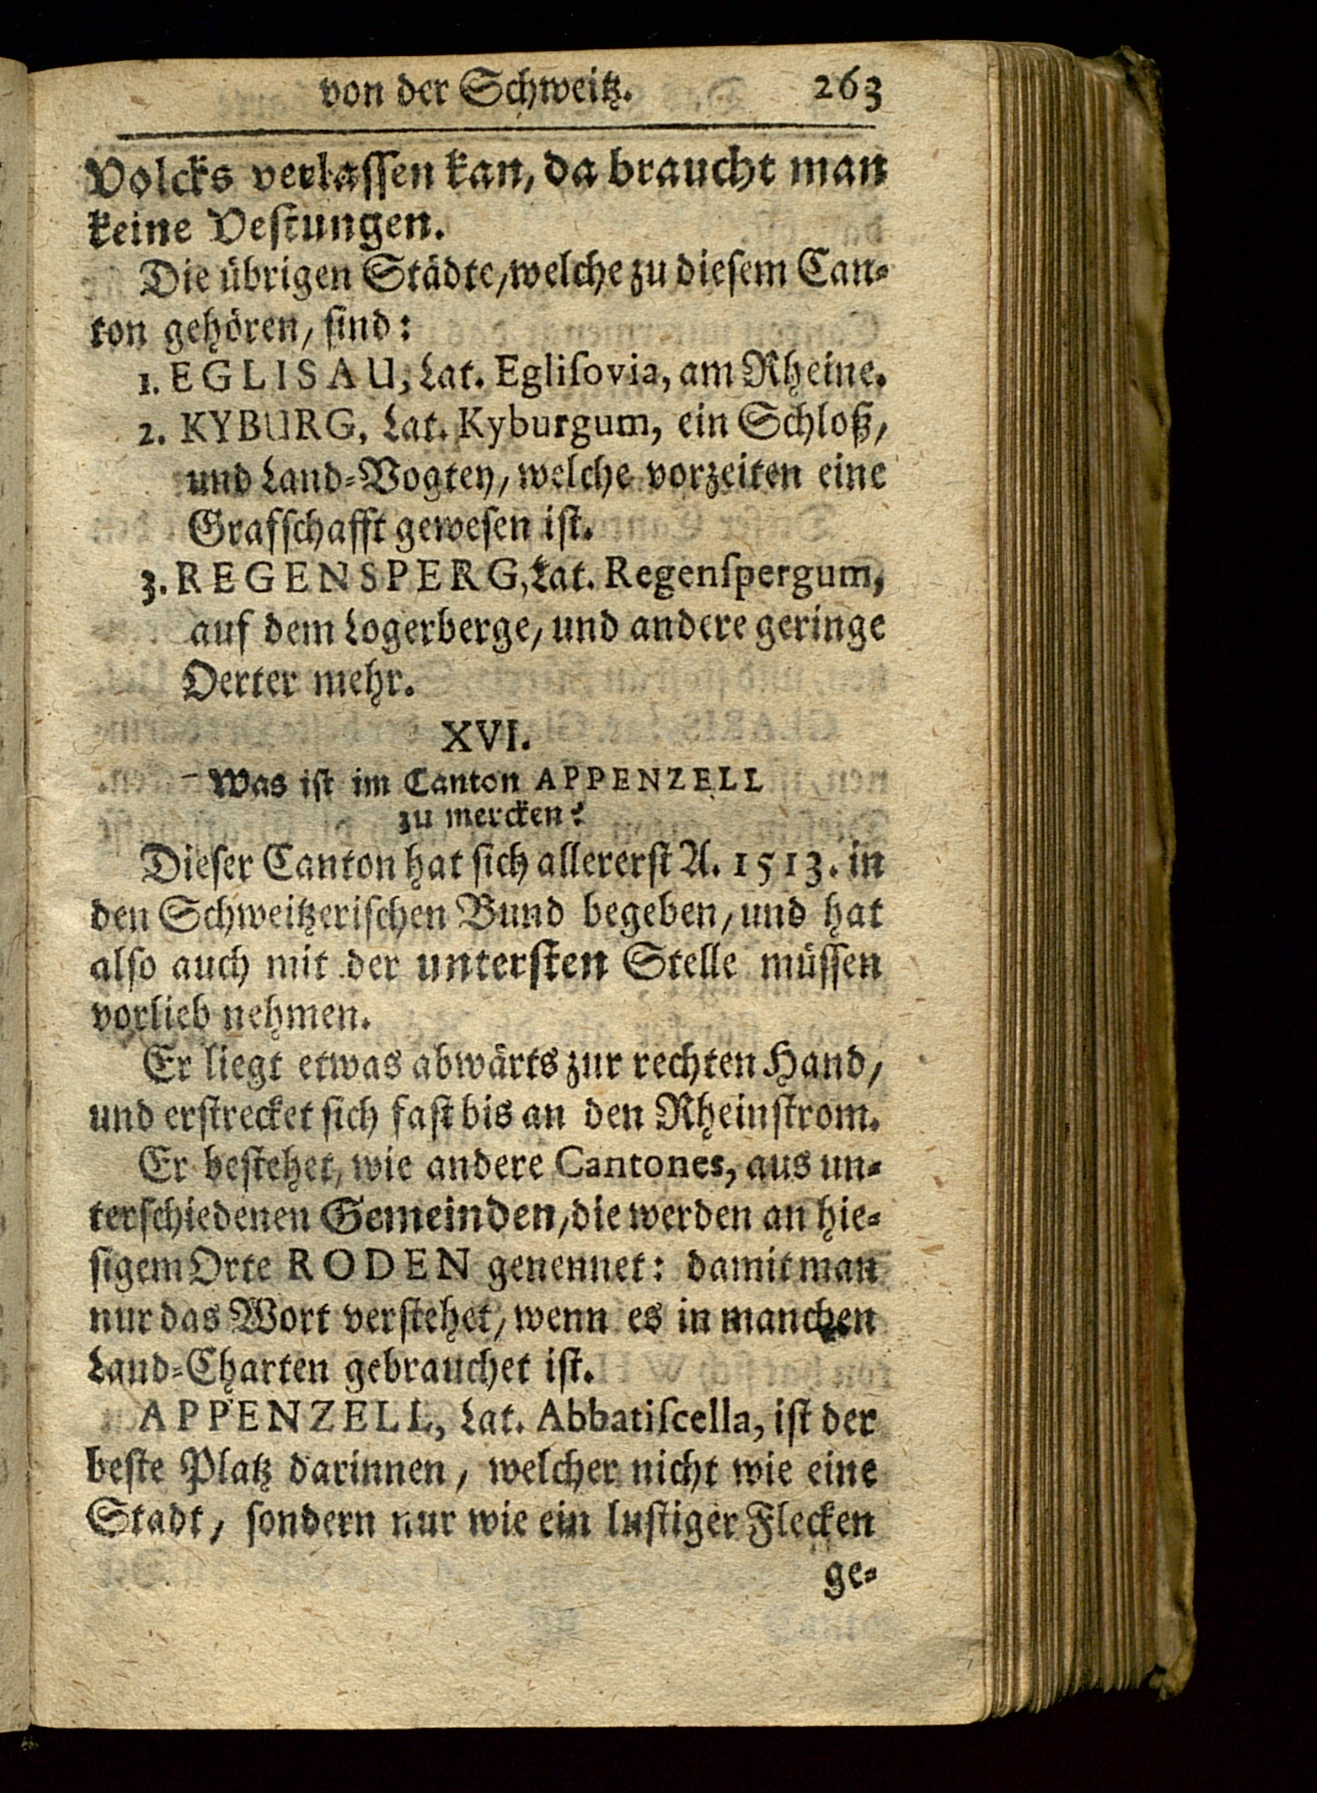 von der Schweitz. 263
Volcks verlassen kan, da braucht man
keine Vestungen.
Die übrigen Städte, welche zu diesem Can-
ton gehören, sind:
1. EGLISAU, Lat. Eglisovia, am Rheine.
2. KYBURG, Lat. Kyburgum, ein Schloß,
und Land-Vogtey, welche vorzeiten eine
Grafschafft gewesen ist.
3. REGENSPERG, Lat. Regenspergum,
auf dem Logerberge, und andere geringe
Oerter mehr.
XVI.
Was ist im Canton APPENZELL
zu mercken?
Dieser Canton hat sich allererst A. 1513. in
den Schweitzerischen Bund begeben, und hat
also auch mit der untersten Stelle müssen
vorlieb nehmen.
Er liegt etwas abwärts zur rechten Hand,
und erstrecket sich fast bis an den Rheinstrom.
Er bestehet, wie andere Cantones, aus un-
terschiedenen Gemeinden, die werden an hie-
sigem Orte RODEN genennet: damit man
nur das Wort verstehet, wenn es in manchen
Land-Charten gebrauchet ist.
APPENZELL, Lat. Abbatiscella, ist der
beste Platz darinnen, welcher nicht wie eine
Stadt, sondern nur wie ein lustiger Flecken
ge-